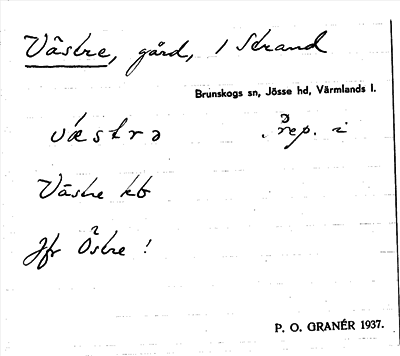 Västre, gård, i Strand
Brunskogs sn, Jösse hd, Värmlands l.
væstrə prep. i
Västre kb
Jfr Östre !
P. O. GRANÉR 1937.